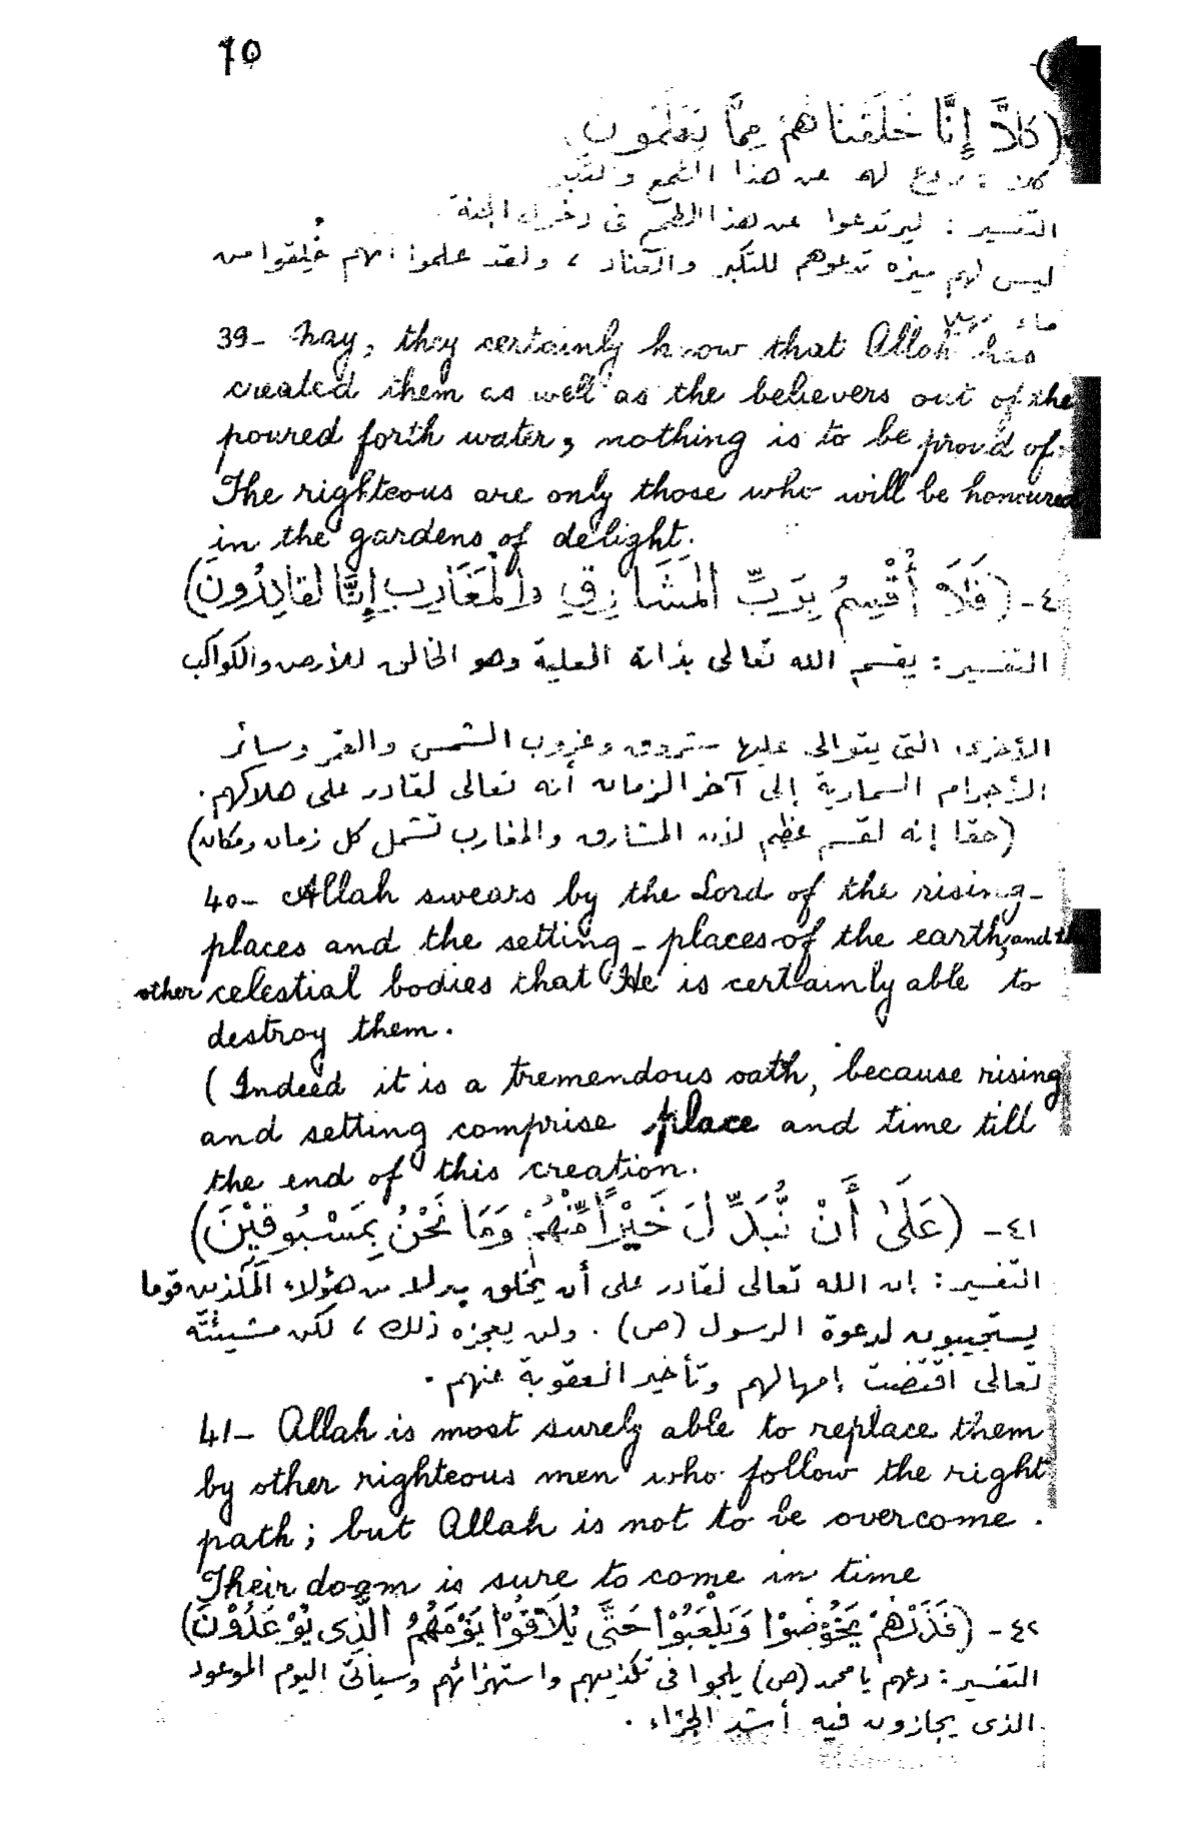 10
(كَلَّا إِنَّا خَلَقْنَاهُمْ مِمَّا يَعْلَمُونَ
كلا : ردع لهم عن هذا الطمع والتكبر
التفسير : ليرتدعوا عن هذا الطمع فى دخول الجنة
ليس لهم ميزه تدعوهم للتكبر والعناد ، ولقد علموا أنهم خُلِقوا من
ماء مهين
39- Nay, they certainly know that Allah has
created them as well as the believers out of the
poured forth water, nothing is to be proud of.
The righteous are only those who will be honoured
in the gardens of delight.
٤٠- (فَلَا أُقْسِمُ بِرَبِّ المَشَارِقِ وَالْمَغَارِبِ إِنَّا لَقَادِرُونَ)
التفسير : يقسم الله تعالى بذاته العلية وهو الخالق للأرض والكواكب
الأخرى التى يتوالى عليها شروق وغروب الشمس والقمر وسائر
الأجرام السماوية إلى آخر الزمان أنه تعالى لقادر على هلاكهم .
(حقا إنه لقسم عظيم لأن المشارق والمغارب تشمل كل زمان ومكان)
40- Allah swears by the Lord of the rising-
places and the setting-places of the earth, and the
other celestial bodies that He is certainly able to
destroy them.
( Indeed it is a tremendous oath, because rising
and setting comprise place and time till
the end of this creation.
٤١- (عَلَىٰ أَنْ نُّبَدِّلَ خَيْرًا مِّنْهُمْ وَمَا نَحْنُ بِمَسْبُوقِيْنَ)
التفسير : إن الله تعالى لقادر على أن يخلق بدلا من هؤلاء المكذبين قوما
يستجيبون لدعوة الرسول (ص) . ولن يعجزه ذلك ، لكن مشيئته
تعالى اقتضت إمهالهم وتأخير العقوبة عنهم .
41- Allah is most surely able to replace them
by other righteous men who follow the right
path; but Allah is not to be overcome.
Their doom is sure to come in time
٤٢- (فَذَرْهُمْ يَخُوْضُوْا وَيَلْعَبُوْا حَتَّى يُلَاقُوْا يَوْمَهُمُ الَّذِى يُوْعَدُوْنَ)
التفسير : دعهم يا محمد (ص) يلجوا فى تكذيبهم واستهزائهم وسيأتى اليوم الموعود
الذى يجازون فيه أشد الجزاء .